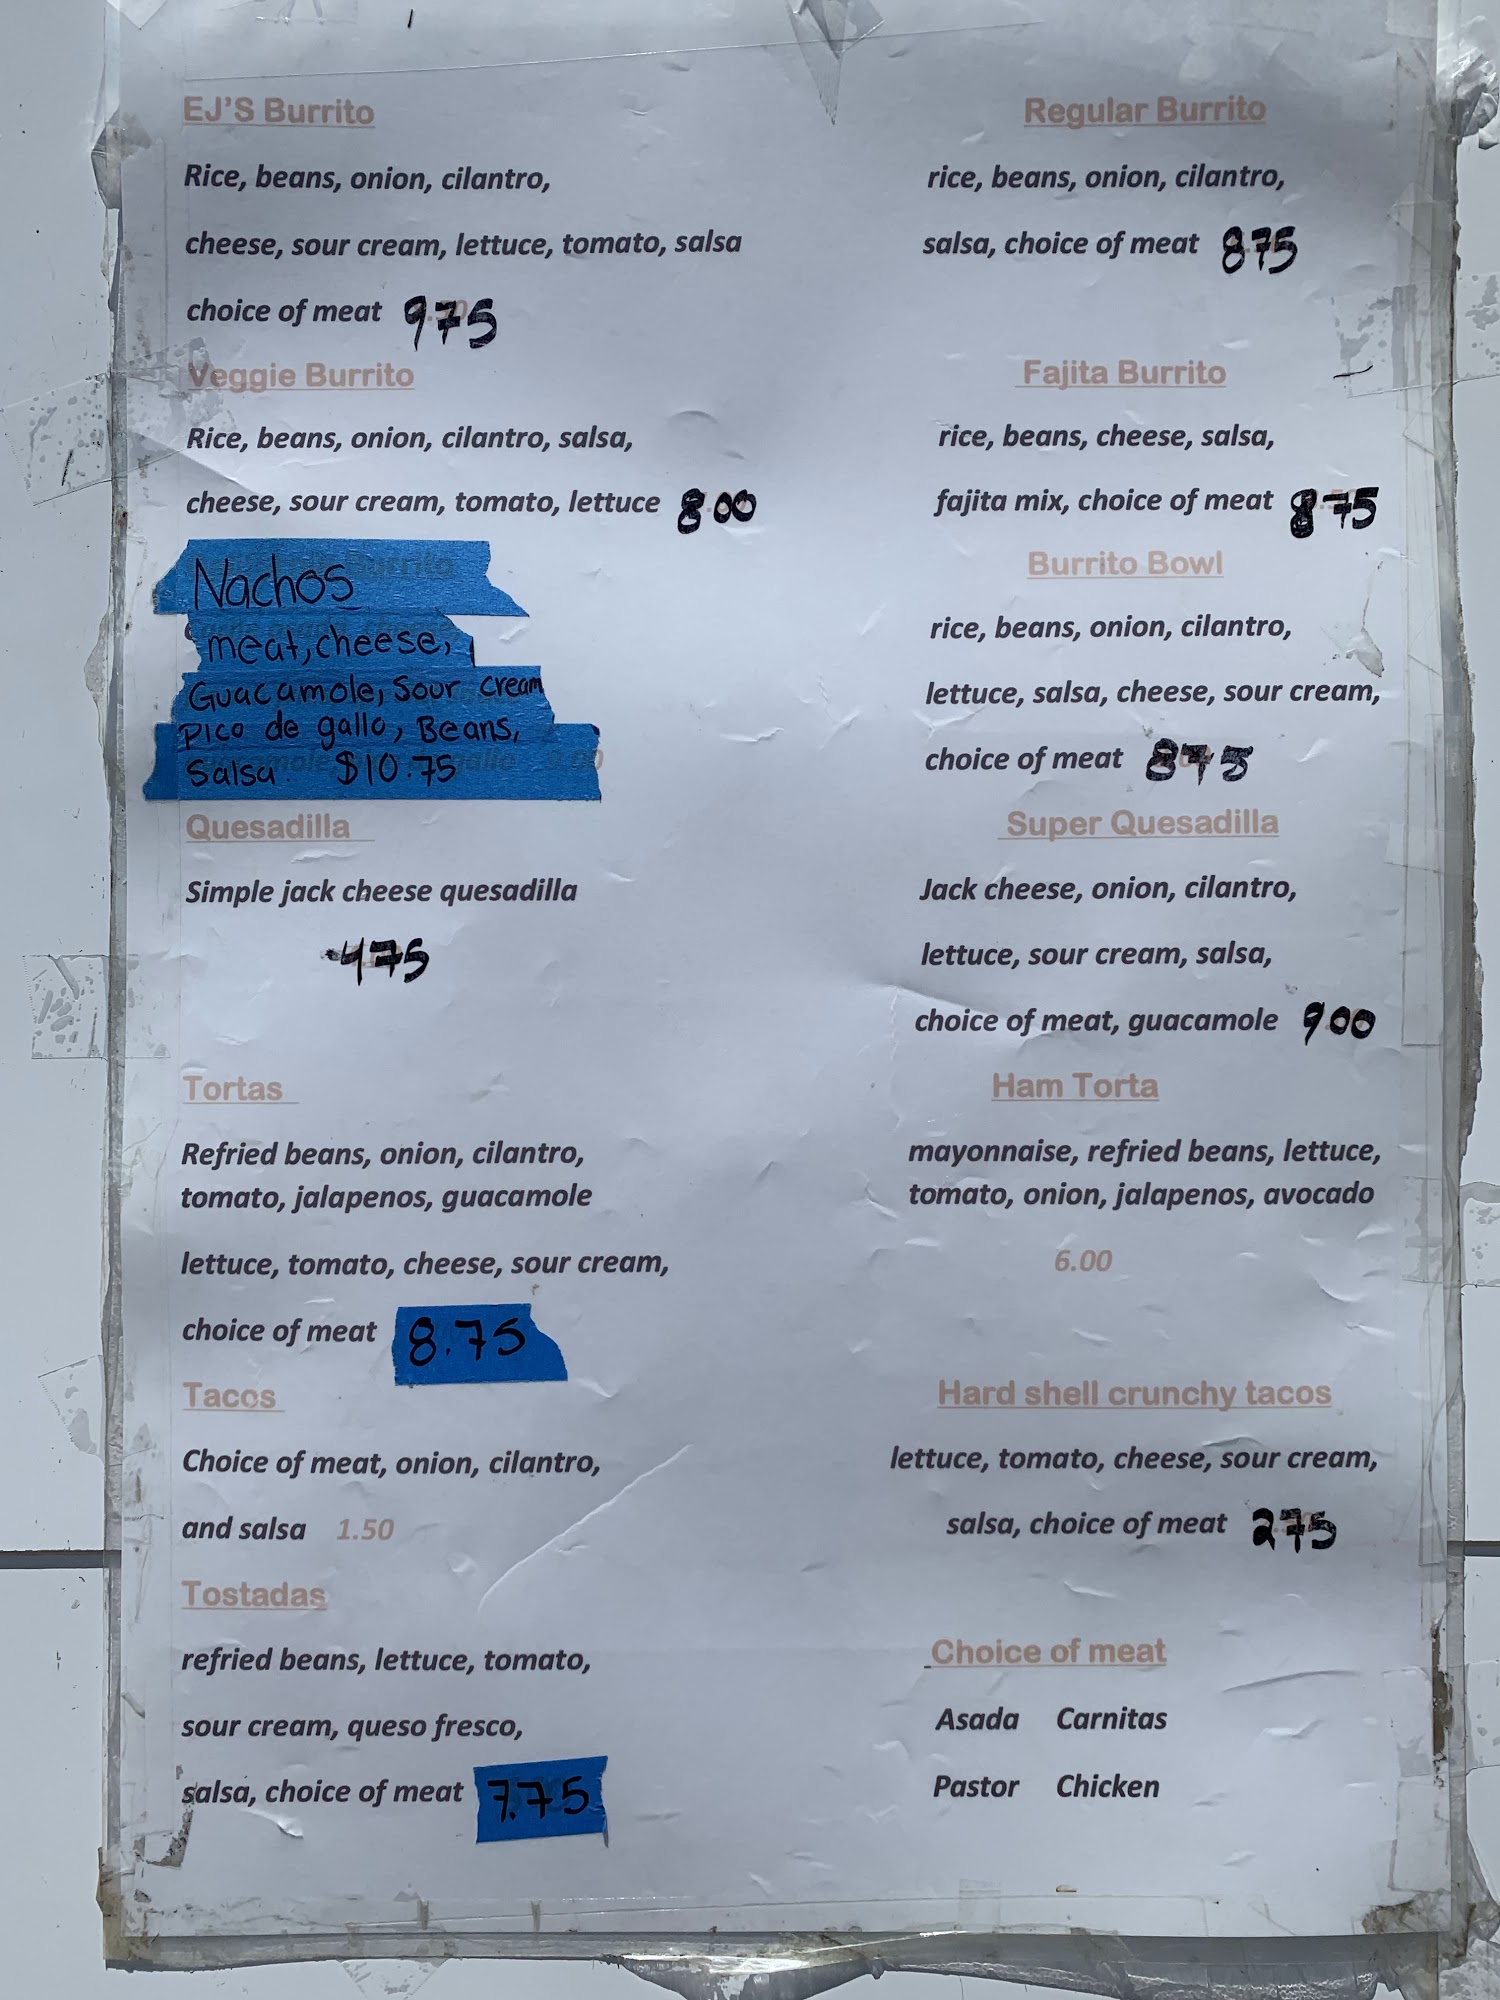 EJ'S Burrito
Rice, beans, onion, cilantro,
cheese, sour cream, lettuce, tomato, salsa
choice of meat 975
Veggie Burrito
Rice, beans, onion, cilantro, salsa,
cheese, sour cream, tomato, lettuce 800
Nachos
meat, cheese,
Guacamole, Sour cream
Pico de gallo, Beans,
Salsa. $10.75
Quesadilla
Simple jack cheese quesadilla
475
Tortas
Refried beans, onion, cilantro,
tomato, jalapenos, guacamole
lettuce, tomato, cheese, sour cream,
choice of meat 8.75
Tacos
Choice of meat, onion, cilantro,
and salsa 1.50
Tostadas
refried beans, lettuce, tomato,
sour cream, queso fresco,
salsa, choice of meat 7.75
Regular Burrito
rice, beans, onion, cilantro,
salsa, choice of meat 875
Fajita Burrito
rice, beans, cheese, salsa,
fajita mix, choice of meat 875
Burrito Bowl
rice, beans, onion, cilantro,
lettuce, salsa, cheese, sour cream,
choice of meat 875
Super Quesadilla
Jack cheese, onion, cilantro,
lettuce, sour cream, salsa,
choice of meat, guacamole 900
Ham Torta
mayonnaise, refried beans, lettuce,
tomato, onion, jalapenos, avocado
6.00
Hard shell crunchy tacos
lettuce, tomato, cheese, sour cream,
salsa, choice of meat 275
Choice of meat
Asada Carnitas
Pastor Chicken